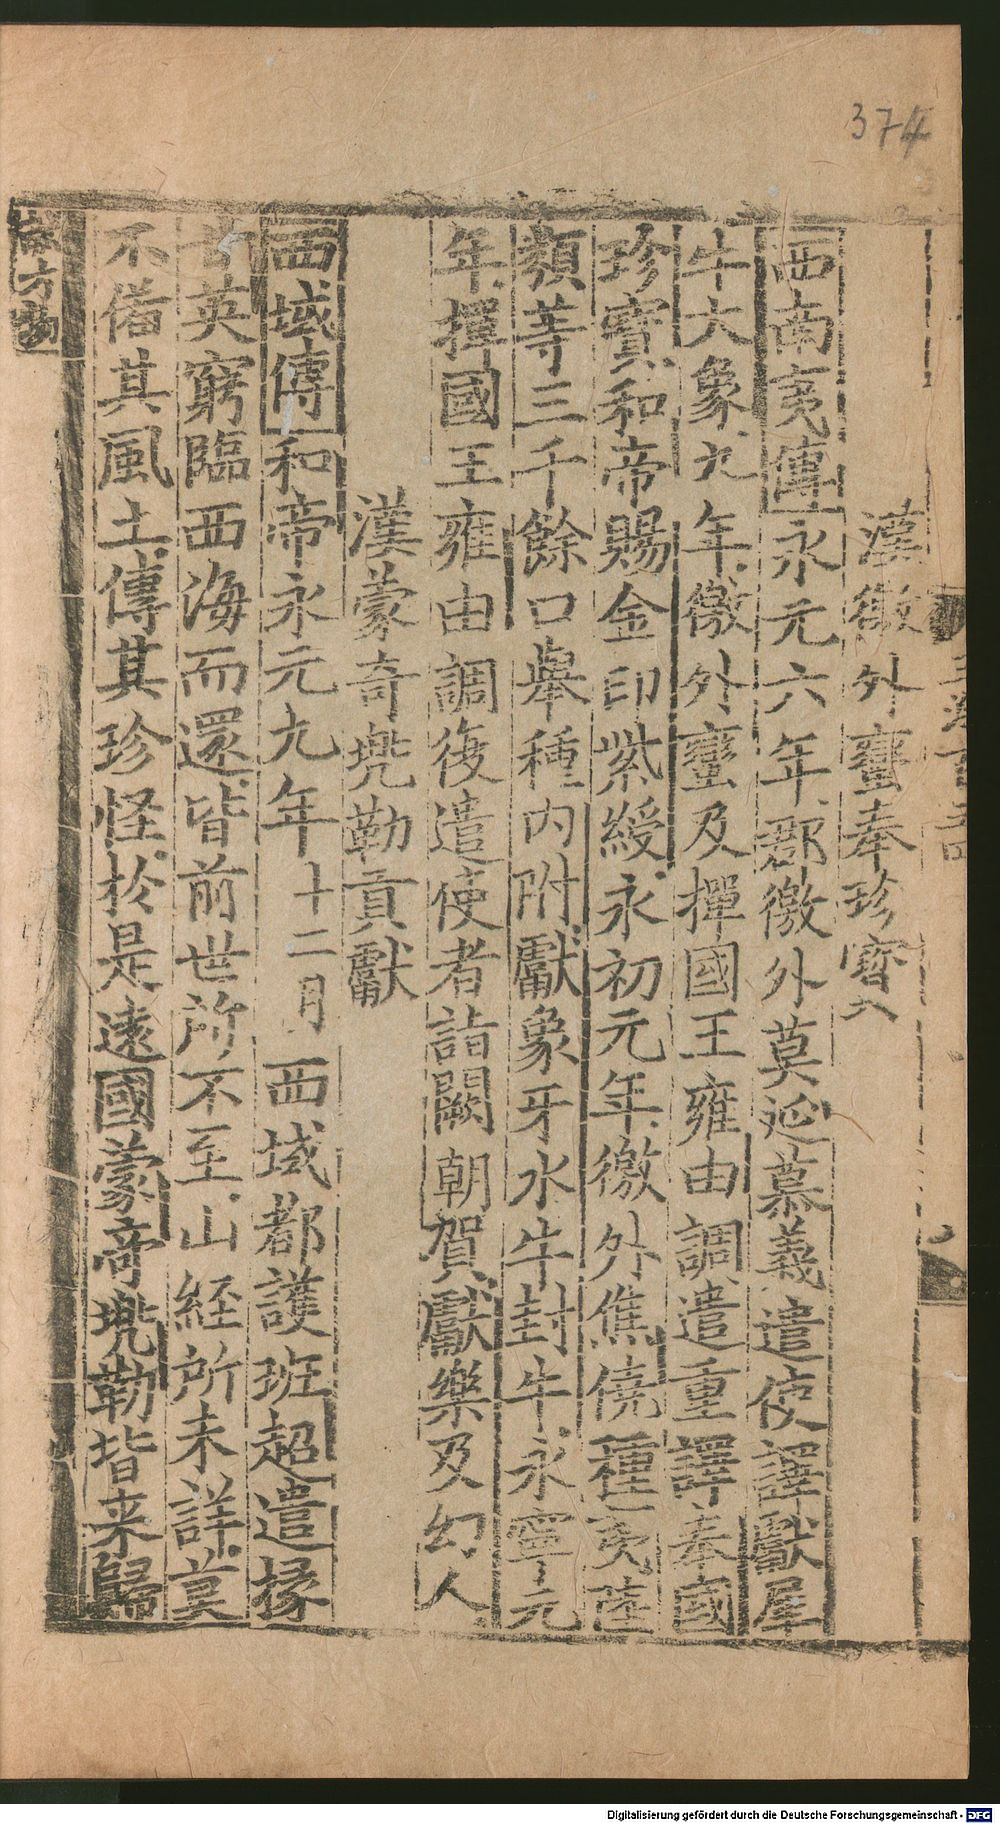 374
漢徼外蠻奉珍寶六
西南夷傳永元六年郡徼外莫延慕義遣使譯獻犀
牛大象九年徼外蠻及撣國王雍由調遣重譯奉國
珍寶和帝賜金印紫綬永初元年徼外僬僥種夷陸
類等三千餘口舉種内附獻象牙水牛封牛永寧元
年撣國王雍由調復遣使者詣闕朝賀獻樂及幻人
漢蒙奇兠勒貢獻
西域傳和帝永元九年十二月西域都護班超遣掾
甘英窮臨西海而還皆前世所不至山経所未詳莫
不備其風土傳其珍怪於是遠國蒙奇兠勒皆来歸
方物
Digitalisierung gefördert durch die Deutsche Forschungsgemeinschaft - DFG